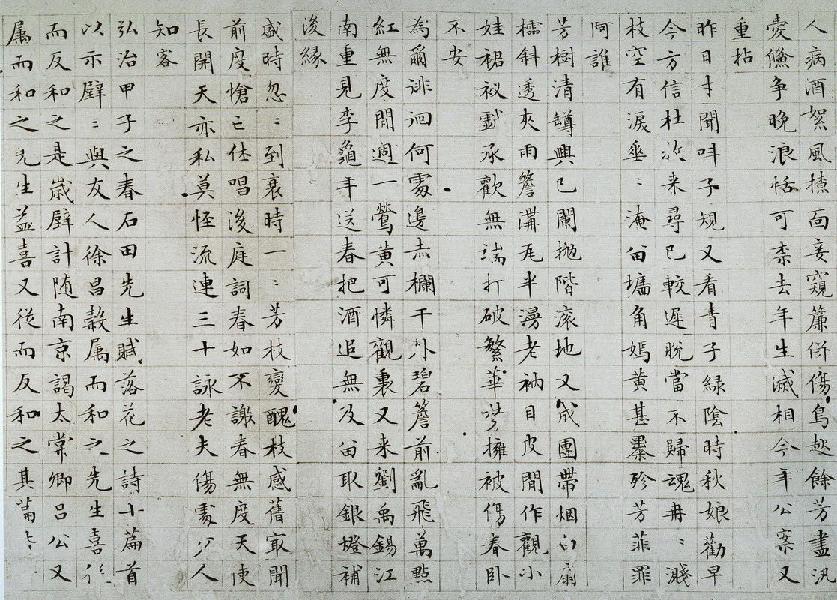 人病酒絮風撩面妾窺簾銜傷鳥趂餘芳盡汎
愛鯈爭晚浪恬可柰去年生滅相今年公案又
重拈
昨日才聞叫子規又看青子綠陰時秋娘勸早
今方信杜牧来尋已較遲脫當不歸魂冉〻濺
枝空有淚垂〻淹留墻角嫣黃甚暴殄芳菲罪
阿誰
芳樹清罇興已闌拋階滾地又成團帶烟白扇
檽斜透夾雨簷溝瓦半漫老衲目皮閒作觀小
娃裙衩戲承歡無端打破繁華夢擁被傷春臥
不安
為爾徘徊何處邊赤欄干外碧簷前亂飛萬點
紅無度閒過一鶯黃可憐觀裏又来劉禹錫江
南重見李龜年送春把酒追無及留取銀燈補
後緣
感時忽〻到衰時一〻芳枝變醜枝感舊最聞
前度愴亡休唱後庭詞春如不謝春無度天使
長開天亦私莫怪流連三十詠老夫傷處少人
知
弘治甲子之春石田先生賦落花之詩十篇首
以示壁〻與友人徐昌穀属而和之先生喜從
而反和之是歲壁計随南京謁太常卿呂公又
属而和之先生益喜又從而反和之其篇